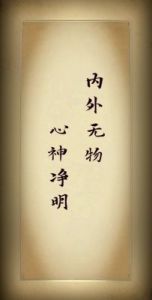 内外无物
心神净明